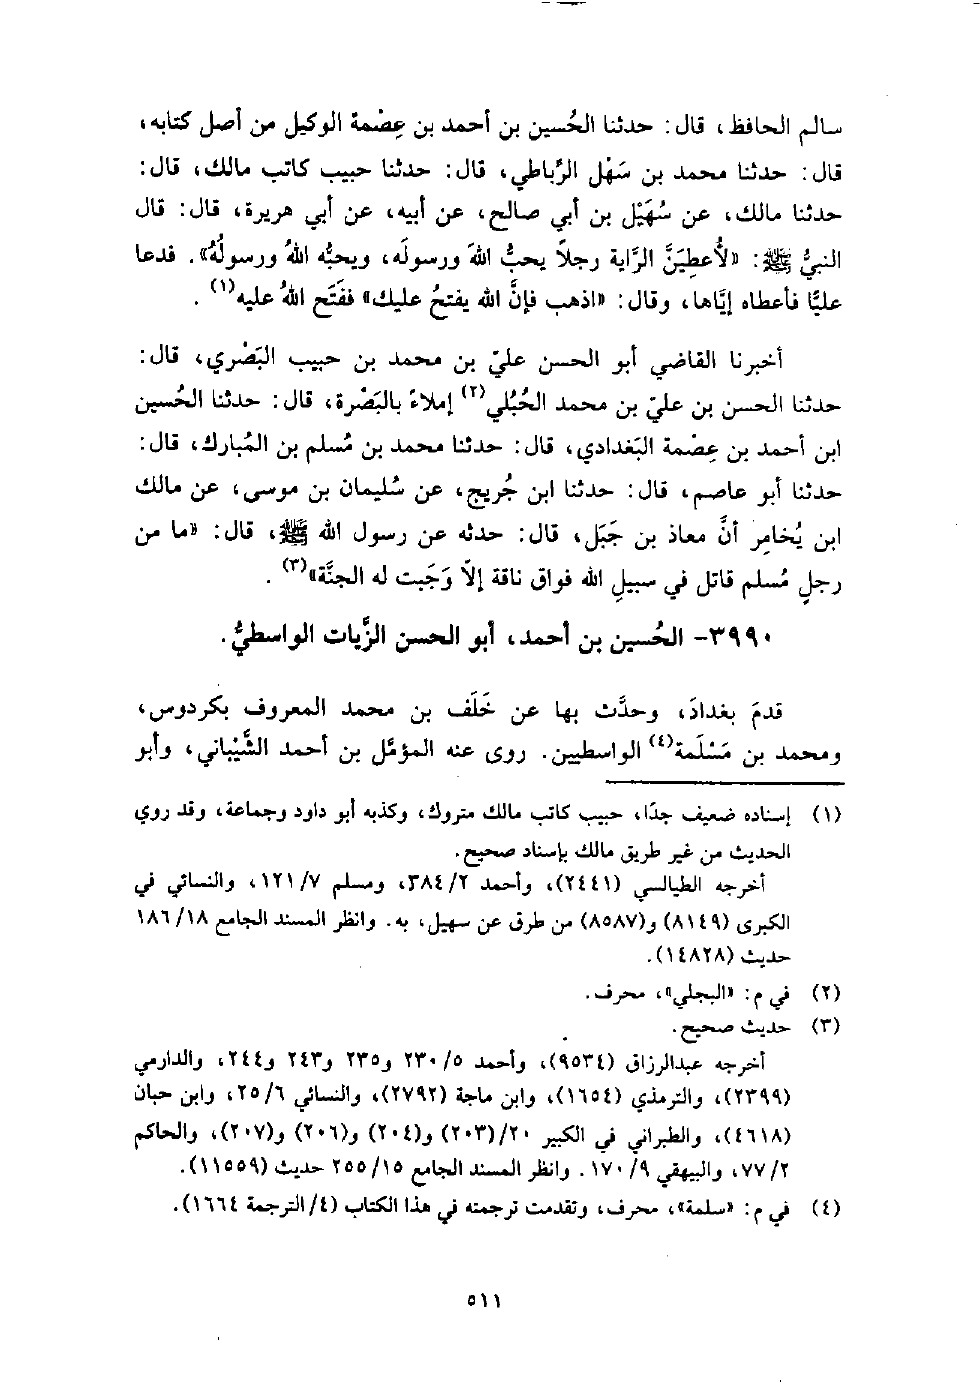 سالم الحافظ، قال: حدثنا الحُسين بن أحمد بن عِصْمة الوكيل من أصل كتابه،
قال: حدثنا محمد بن سَهْل الرِّباطي، قال: حدثنا حبيب كاتب مالك، قال:
حدثنا مالك، عن سُهَيْل بن أبي صالح، عن أبيه، عن أبي هريرة، قال: قال
النبيُّ ﷺ: «لأُعطِيَنَّ الرَّاية رجلاً يحبُّ اللهَ ورسولَه، ويحبُّه اللهُ ورسولُهُ». فدعا
عليًّا فأعطاه إيَّاها، وقال: «اذهب فإنَّ الله يفتحُ عليك» ففَتَح اللهُ عليه(١) .
أخبرنا القاضي أبو الحسن عليّ بن محمد بن حبيب البَصْري، قال:
حدثنا الحسن بن عليّ بن محمد الجُبُلي(٢) إملاءً بالبَصْرة، قال: حدثنا الحُسين
ابن أحمد بن عِصْمة البَغدادي، قال: حدثنا محمد بن مُسلم بن المُبارك، قال:
حدثنا أبو عاصم، قال: حدثنا ابن جُريج، عن سُليمان بن موسى، عن مالك
ابن يُخامِر أنَّ معاذ بن جَبَل، قال: حدثه عن رسول الله ﷺ، قال: «ما من
رجلٍ مُسلم قاتل في سبيلِ الله فواق ناقة إلاَّ وَجَبت له الجنَّة»(٣) .
٣٩٩٠- الحُسين بن أحمد، أبو الحسن الزَّيات الواسطيُّ.
قدمَ بغدادَ، وحدَّث بها عن خَلَف بن محمد المعروف بكردوس،
ومحمد بن مَسْلَمة(٤) الواسطيين. روى عنه المؤمَّل بن أحمد الشَّيْباني، وأبو
(١) إسناده ضعيف جدًا، حبيب كاتب مالك متروك، وكذبه أبو داود وجماعة، وقد روي
الحديث من غير طريق مالك بإسناد صحيح.
أخرجه الطيالسي (٢٤٤١)، وأحمد ٢/ ٣٨٤، ومسلم ٧/ ١٢١، والنسائي في
الكبرى (٨١٤٩) و(٨٥٨٧) من طرق عن سهيل، به. وانظر المسند الجامع ١٨/ ١٨٦
حديث (١٤٨٢٨).
(٢) في م: «البجلي»، محرف.
(٣) حديث صحيح.
أخرجه عبدالرزاق (٩٥٣٤)، وأحمد ٥/ ٢٣٠ و٢٣٥ و٢٤٣ و٢٤٤، والدارمي
(٢٣٩٩)، والترمذي (١٦٥٤)، وابن ماجة (٢٧٩٢)، والنسائي ٦/ ٢٥، وابن حبان
(٤٦١٨)، والطبراني في الكبير ٢٠/(٢٠٣) و(٢٠٤) و(٢٠٦) و(٢٠٧)، والحاكم
٢/ ٧٧، والبيهقي ٩/ ١٧٠. وانظر المسند الجامع ١٥/ ٢٥٥ حديث (١١٥٥٩).
(٤) في م: «سلمة»، محرف، وتقدمت ترجمته في هذا الكتاب (٤/ الترجمة ١٦٦٤).
٥١١